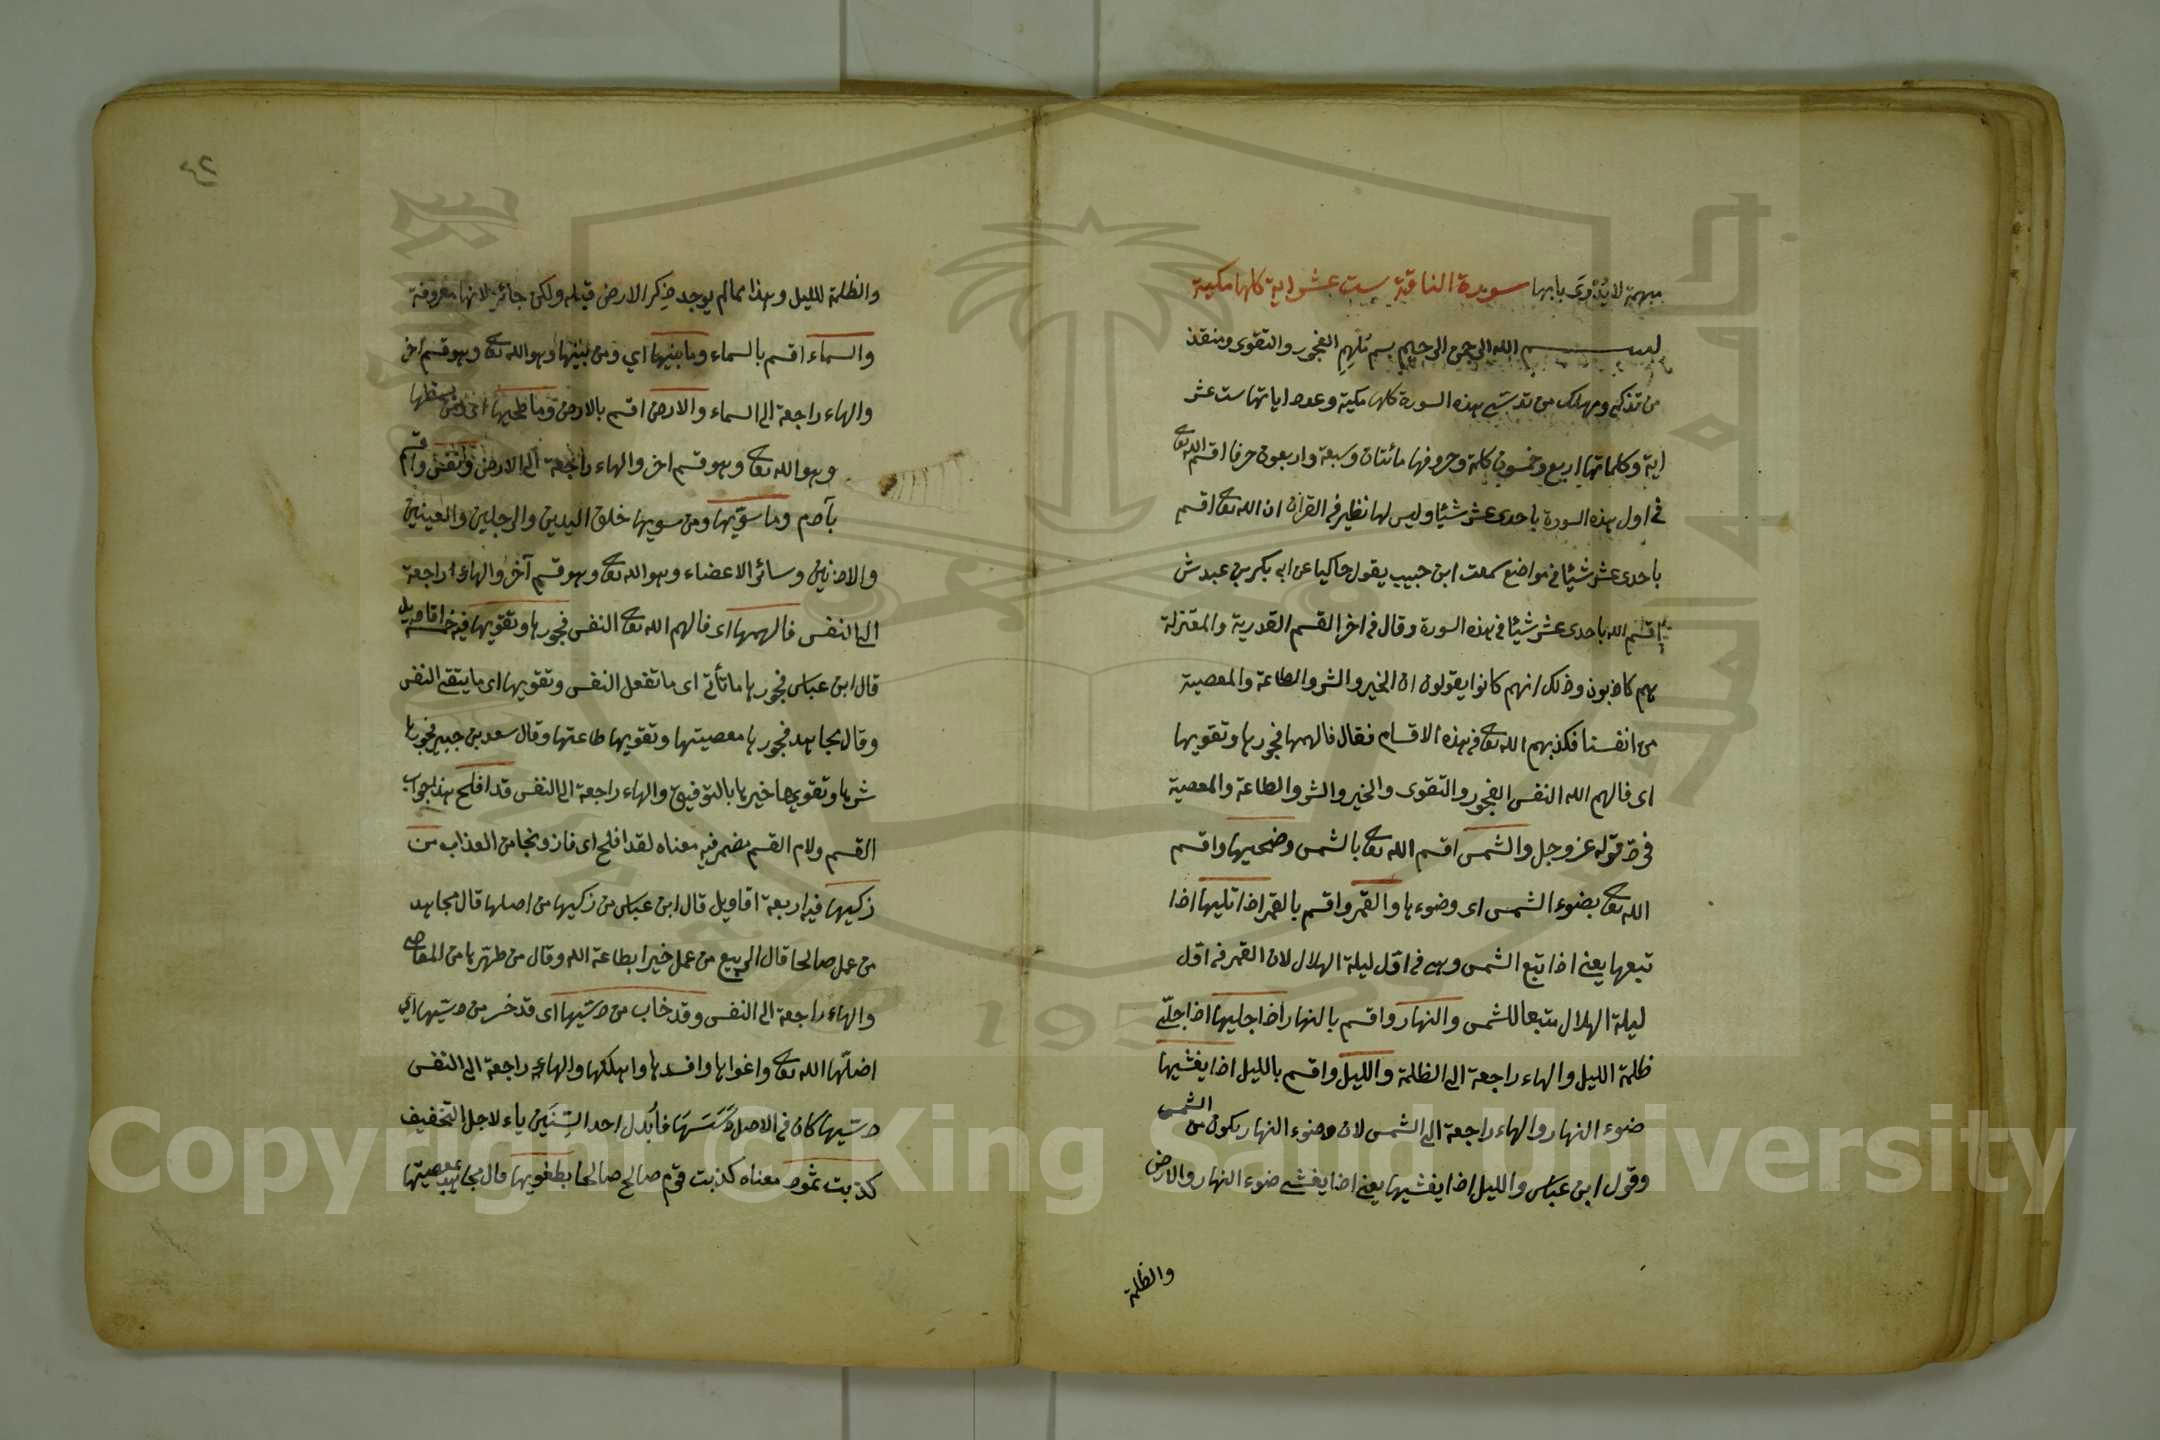 مبهمة لا يدرى بابها سورة الناقة ست عشر اية كلها مكية
بسم الله الرحمن الرحيم بسم ملهم الفجور والتقوى ومنقذ
من تزكى ومهلك من تدسى هذه السورة كلها مكية وعدد اياتها ست عشر
اية وكلماتها اربع وخمسون كلمة وحروفها مائتان وسبعة واربعون حرفا اقسم الله تعالى
فى اول هذه السورة باحدى عشر شيئا وليس لها نظير فى القرآن ان الله تعالى اقسم
باحدى عشر شيئا فى مواضع سمعت ابن حبيب يقول حاكيا عن ابى بكر بن عبدش
اقسم الله باحدى عشر شيئا فى هذه السورة وقال فى اخر القسم القدرية والمعتزلة
هم كاذبون وذلك انهم كانوا يقولون ان الخير والشر والطاعة والمعصية
من انفسنا فكذبهم الله تعالى فى هذه الاقسام فقال فالهمها فجورها وتقويها
اى فالهم الله النفس الفجور والتقوى والخير والشر والطاعة والمعصية
قوله عز وجل والشمس اقسم الله تعالى بالشمس وضحيها واقسم
الله تعالى بضوء الشمس اى وضوءها والقمر واقسم بالقمر اذا تليها اذا
تبعها يعنى اذا تبع الشمس وهى فى اول ليلة الهلال لان القمر فى اول
ليلة الهلال متبعا للشمس والنهار واقسم بالنهار اذا جليها اذا جلى
ظلمة الليل والهاء راجعة الى الظلمة والليل واقسم بالليل اذا يغشيها
ضوء النهار والهاء راجعة الى الشمس لان ضوء النهار يكون من الشمس
وقول ابن عباس والليل اذا يغشيها يعنى اذا يغشى ضوء النهار والارض
والظلمة
٤٢
والظلمة لليل وهذا مما لم يوجد ذكر الارض قبله ولكن جائز لانها معروفة
والسماء اقسم بالسماء وما بنيها اي ومن بنيها وهو الله تعالى وهو قسم اخر
والهاء راجعة الى السماء والارض اقسم بالارض وما طحيها اى ومن بسطها
وهو الله تعالى وهو قسم اخر والهاء راجعة الى الارض ونفس واقسم
بآدم وما سويها ومن سويها خلق اليدين والرجلين والعينين
والاذنين وسائر الاعضاء وهو الله تعالى وهو قسم آخر والهاء راجعة
الى النفس فالهمها اى فالهم الله تعالى النفس فجورها وتقويها فيه خمسة اقاويل
قال ابن عباس فجورها ما تأتى اى ما تفعل النفس وتقويها اى ما يتقى النفس
وقال مجاهد فجورها معصيتها وتقويها طاعتها وقال سعد بن جبير فجورها
شرها وتقويها خيرها بالتوفيق والهاء راجعة الى النفس قد افلح هذا جواب
القسم ولام القسم مضمر فيه معناه لقد افلح اى فاز ونجا من العذاب من
زكيها فيه اربعة اقاويل قال ابن عباس من زكيها من اصلها قال مجاهد
من عمل صالحا قال الربيع من عمل خيرا بطاعة الله وقال من طهرها من المعاصى
والهاء راجعة الى النفس وقد خاب من دسيها اى قد خسر من دسيها اي
اضلها الله تعالى واغواها وافسدها واهلكها والهاء راجعة الى النفس
دسيها كان فى الاصل دسسها فابدل احد السنين ياء لاجل التخفيف
كذبت ثمود معناه كذبت قوم صالح صالحا بطغويها قال مجاهد بمعصيتها
Copyright © King Saud University
1957